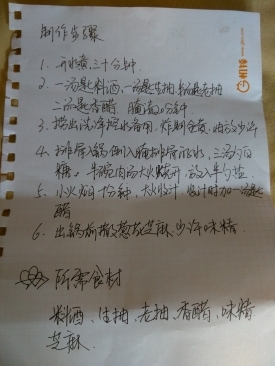 制作步骤
1. 开水煮三十分钟.
2. 一汤匙料酒,一汤匙生抽,半汤匙老抽
二汤匙香醋 腌渍20分钟
3. 捞出洗净控水备用,炸制金黄,油放少许
4. 排骨入锅倒入腌排骨的水,三汤勺白
糖。半碗肉汤大火烧开,放入半勺盐.
5. 小火焖十分钟,大火收汁 收汁时加一汤匙
醋
6. 出锅前撒葱花芝麻,少许味精.
所需食材
料酒、生抽、老抽、香醋、味精
芝麻.